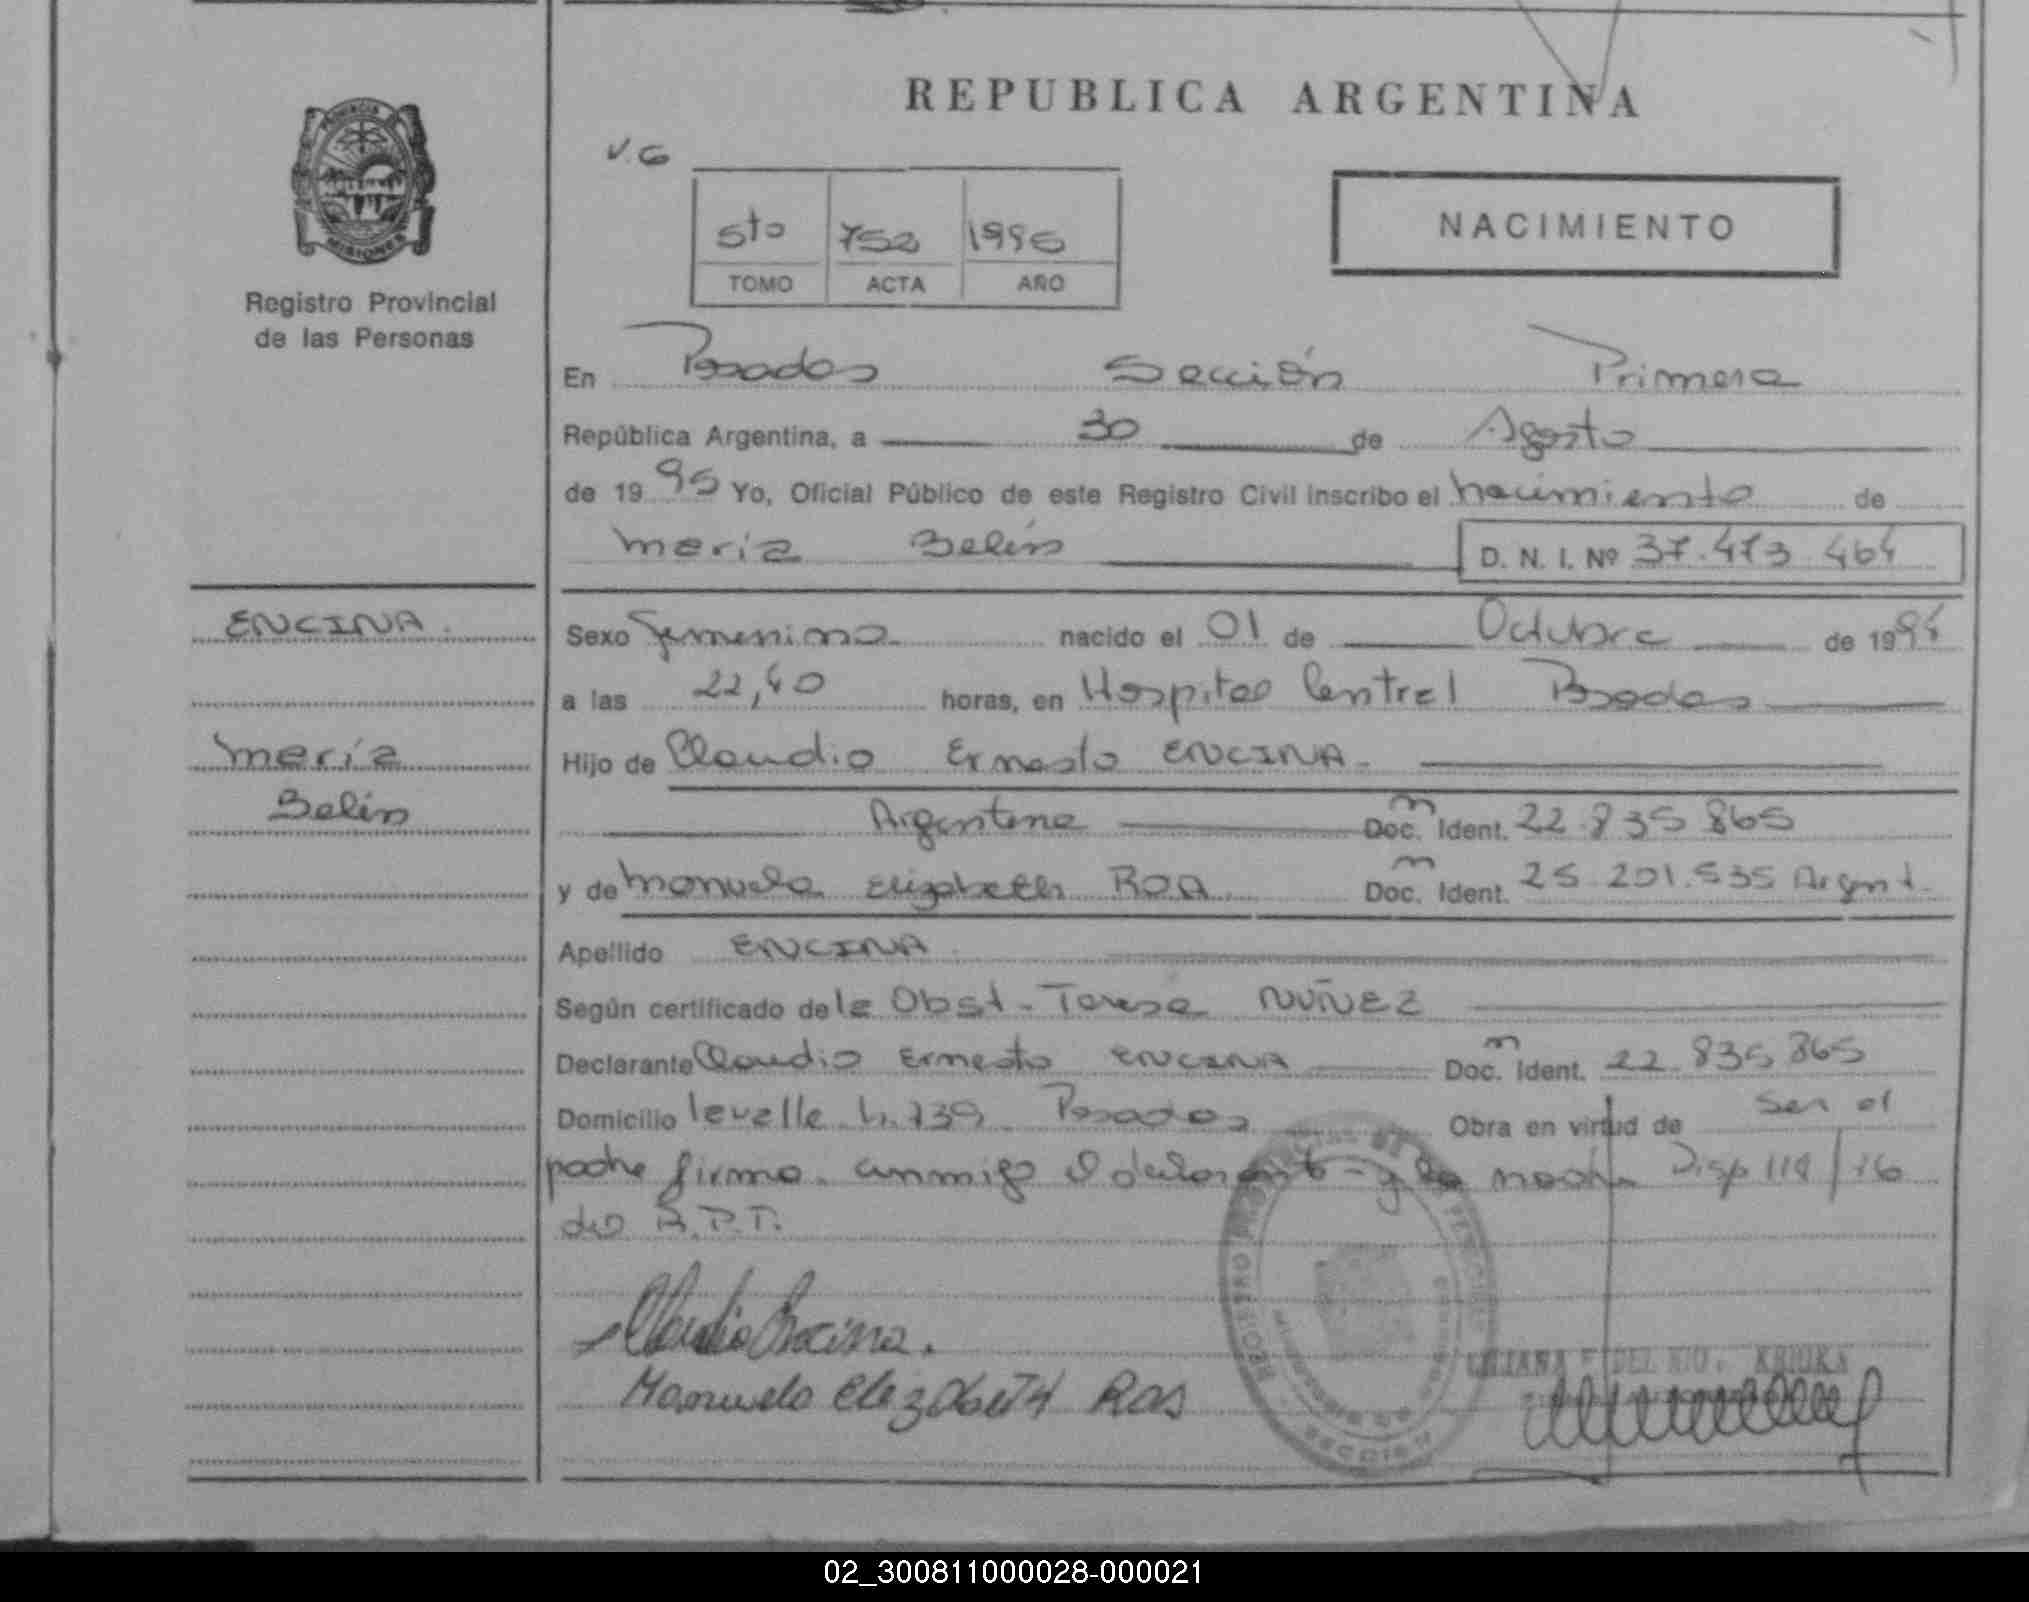 REPUBLICA ARGENTINA
PROVINCIA
MISIONES
Registro Provincial
de las Personas
V.G
5to 752 1995
TOMO ACTA AÑO
NACIMIENTO
En Posadas Sección Primera
República Argentina, a 30 de Agosto
de 1995 Yo, Oficial Público de este Registro Civil inscribo el nacimiento de
María Belén D. N. I. Nº 37.473.464
ENCINA.
María
Belén
Sexo Femenino nacido el 01 de Octubre de 1994
a las 22,40 horas, en Hospital Central Posadas
Hijo de Claudio Ernesto ENCINA.
Argentina Doc. m Ident. 22.835.865
y de Manuela Elizabeth ROA Doc. m Ident. 25.201.535 Argent.
Apellido ENCINA.
Según certificado de la Obst. Teresa NUÑEZ
Declarante Claudio Ernesto ENCINA Doc. m Ident. 22.835.865
Domicilio Levalle 4.739 Posadas Obra en virtud de Ser el
padre firma conmigo el declarante y la madre Disp 118/
del R.P.P.
Claudio Encina.
Manuela Elizabeth Roa
LILIANA DEL RIO
02_300811000028-000021